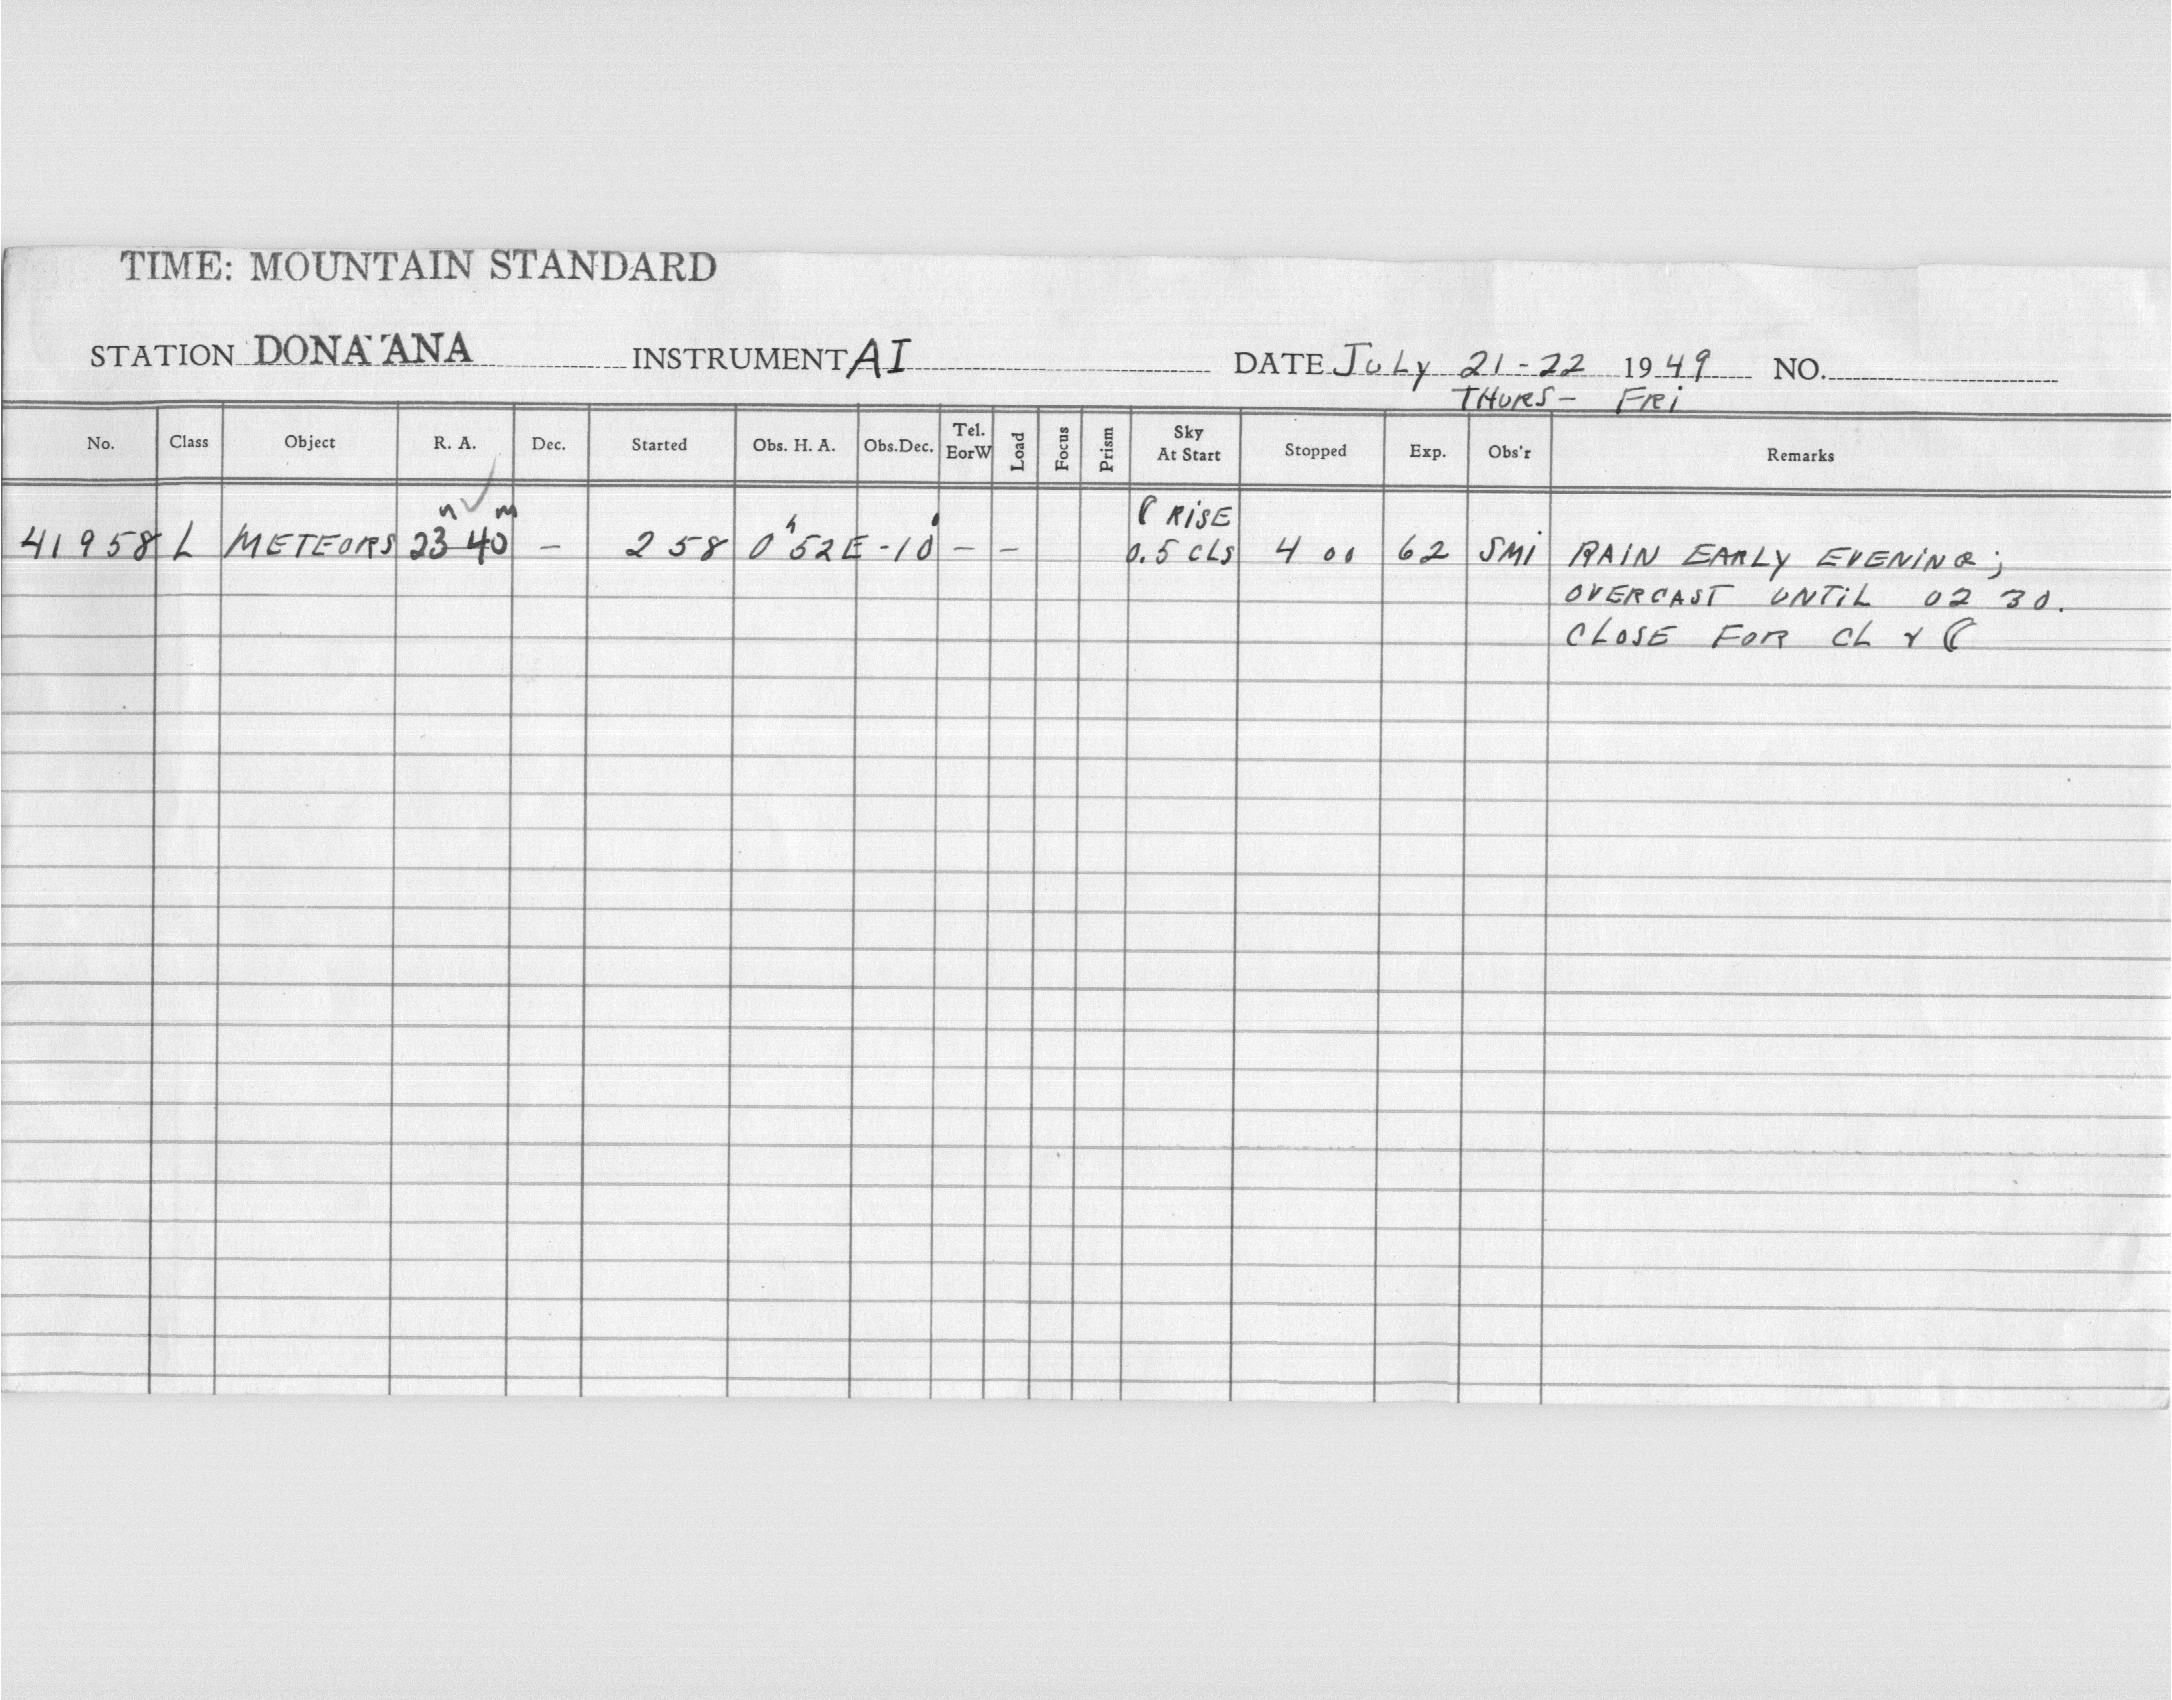 TIME: MOUNTAIN STANDARD
STATION DONA ANA INSTRUMENT AI DATE JULY 21-22 1949 NO.
THURS- FRI
No. Class Object R. A. Dec. Started Obs. H. A. Obs.Dec. Tel. EorW Load Focus Prism Sky At Start Stopped Exp. Obs'r Remarks
☾ RISE
41958 L METEORS 23h 40m - 2 58 0h52E -10° - - 0.5 CLS 4 00 62 SMi RAIN EARLY EVENING;
OVERCAST UNTIL 02 30.
CLOSE FOR CL & ☾